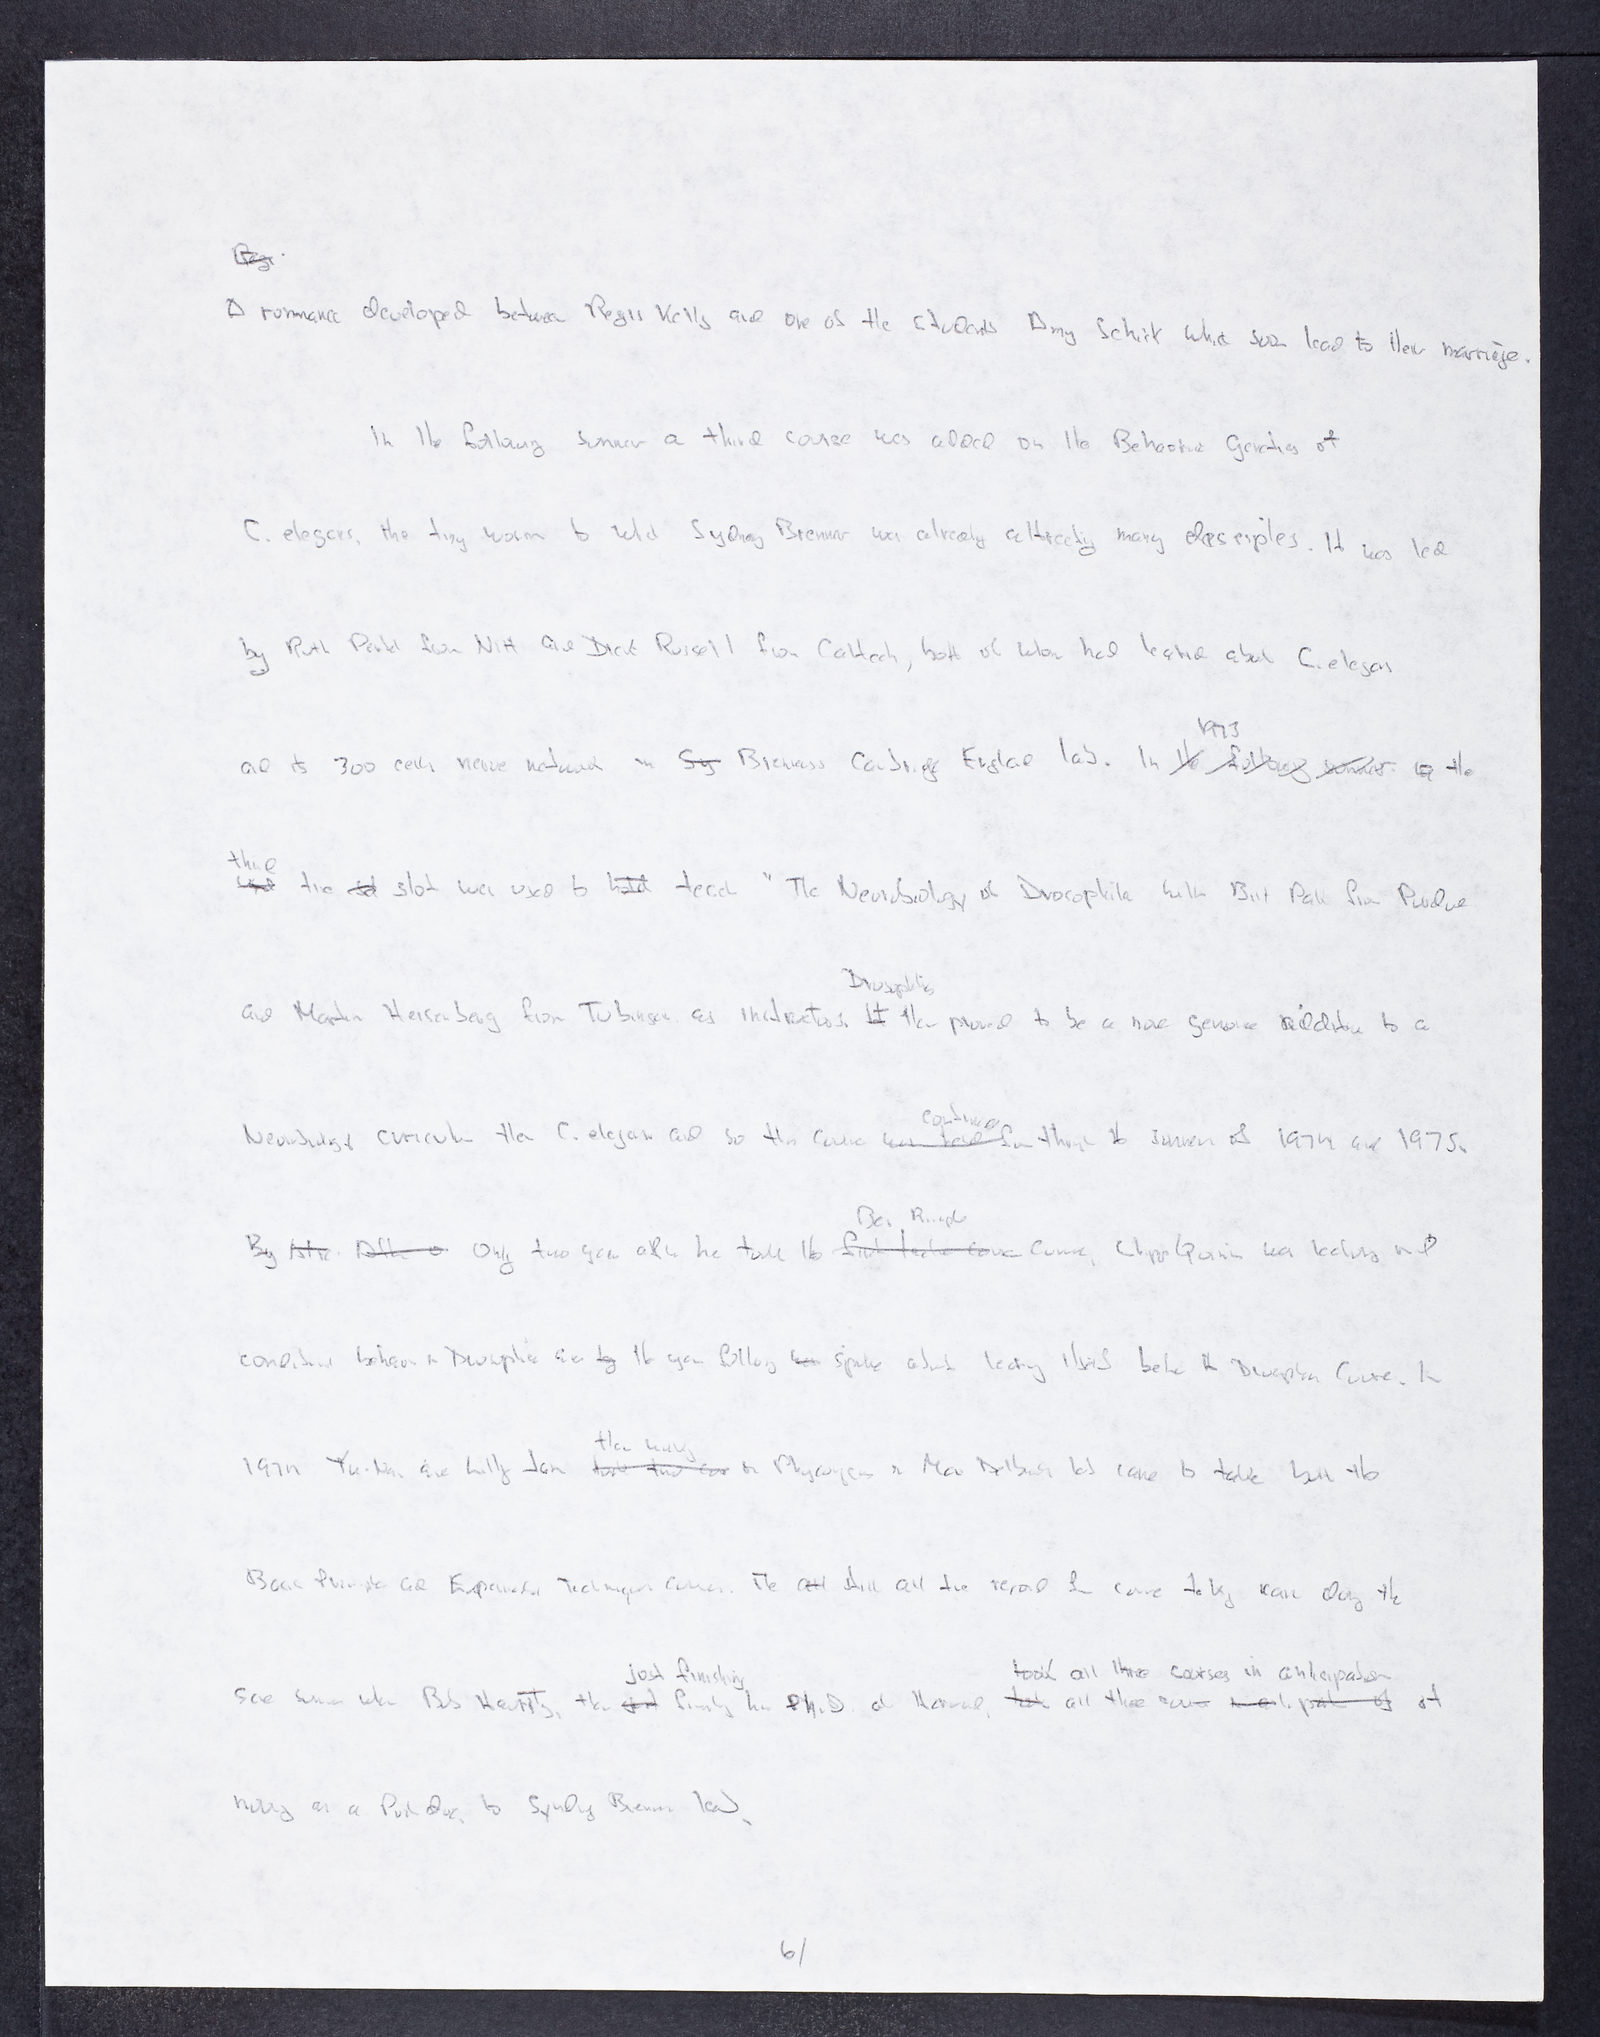 Regi.
A rommance developed between Regis Kelly and one of the students Amy Schirt which soon lead to their marriage.
In the following summer a third course was added on the Behavioral Genetics of
C. elegans, the tiny worm to which Sydney Brenner was already attracting many desciples. It was led
by Ruth from NIH and Dick Russell from Caltech, both of whom had learned about C. elegans
and its 300 cells nerve network in Sy Brenners Cambridge England lab. In the following summer in the
1973
third
time slot was used to hold teach "The Neurobiology of Drosophila with Bill Pak from Purdue
and Martin Heisenberg from Tubingen as instructors. It then proved to be a more genuine addition to a
Drosophila
Neurobiology curriculum then C. elegans and so this course was for through the summers of 1974 and 1975.
continued
By After Only two years after he took the course, Chip Quinn was lecturing on
Basic Principle
conditioned behavior in Drosophila and by the year following spoke about learning itself before the Drosophila Course. In
1974 Yu-Nan and Lilly Jan took two on Phycomyces in Max Delbruck lab came to take both the
then working
Basic Principle and Experimental Techniques courses. The all still all time record for course taking came during the
same summer when Bob Horvitz, then finishing his Ph.D. at Harvard, all three of
just finishing took all three courses in anticipation
moving as a Post doc, to Sydney Brenner lab.
6/